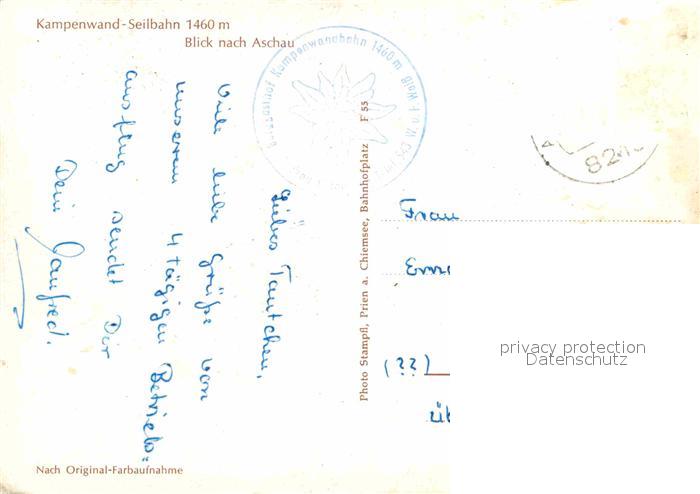 Kampenwand-Seilbahn 1460 m
Blick nach Aschau
Liebes Tantchen,
Viele liebe Grüße von
unserem 4 tägigen Betriebs-
ausflug sendet Dir
Dein Manfred.
Photo Stampfl, Prien a. Chiemsee, Bahnhofplatz F 55
Kampenwandbahn 1460 m
82
Frau
(??)
privacy protection
Datenschutz
Nach Original-Farbaufnahme